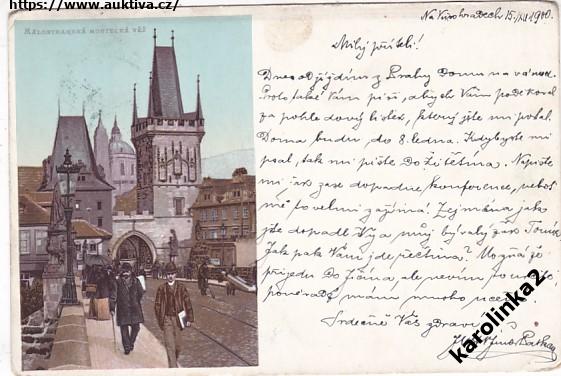 https://www.auktiva.cz/
MALOSTRANSKÁ MOSTECKÁ VĚŽ
Na Vinohradech 15./XII 1900.
Milý příteli!
Dnes odjíždím z Prahy domu na vánoce.
Proto také Vám píši, abych Vám poděkoval
za pohledový lístek, který jste mi poslal.
Doma budu do 8. ledna. Kdybyste mi
psal, tak mi pište do Žitětína. Napište
mi, jak zase dopadne konference, neboť
mě to velmi zajímá! Zejména jak
jste dopadl Vy a můj bývalý žák Tomík
Jak pak Vám jde řečtina? Možná že
přijedu do Jičína, ale nevím to jistě,
poněvadž mám mnoho učení.
Srdečně Vás zdraví
karolinka2